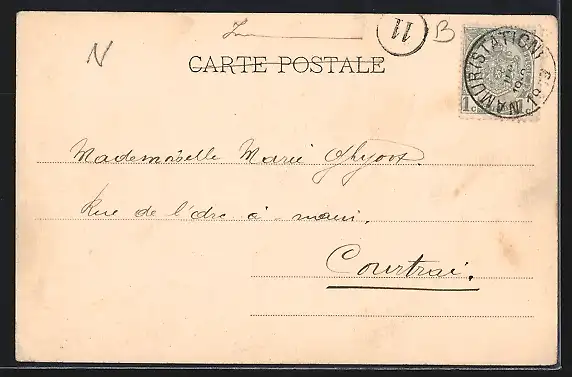 N
11
B
CARTE POSTALE
NAMUR (STATION)
1 C
Mademoiselle Marie Ghyoot.
Rue de l'
Courtrai.